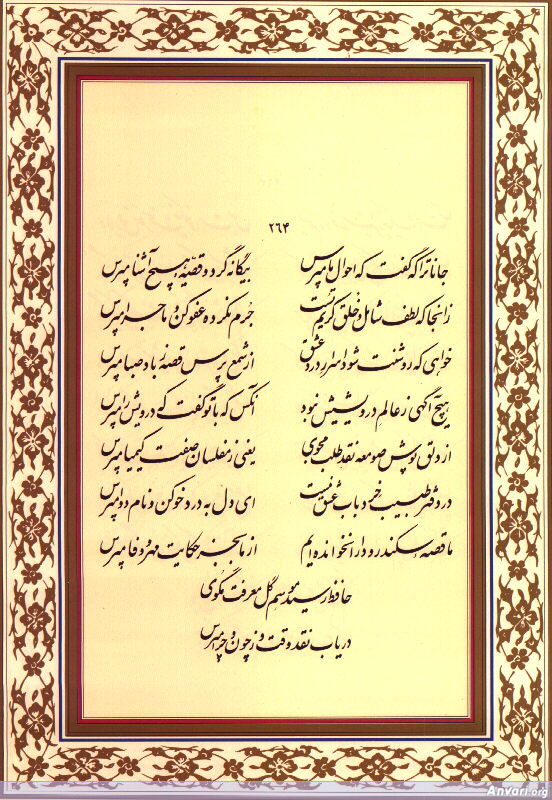 ۲۶۴
جانا ترا که گفت که احوال ما مپرس بیگانه گرد و قصّهٔ هیچ آشنا مپرس
زانجا که لطف شامل و خلق کریم تست جرم نکرده عفو کن و ماجرا مپرس
خواهی که روشنت شود اسرار درد عشق از شمع پرس قصه ز باد صبا مپرس
هیچ آگهی ز عالم درویشیش نبود آنکس که با تو گفت که درویش را مپرس
از دلق پوش صومعه نقد طلب مجوی یعنی ز مفلسان صفت کیمیا مپرس
در دفتر طبیب خرد باب عشق نیست ای دل به درد خو کن و نام دوا مپرس
ما قصه سکندر و دارا نخوانده ایم از ما بجز حکایت مهر و وفا مپرس
حافظ رسید موسم گل معرفت مگوی
دریاب نقد وقت و ز چون و چرا مپرس
Anvari.org